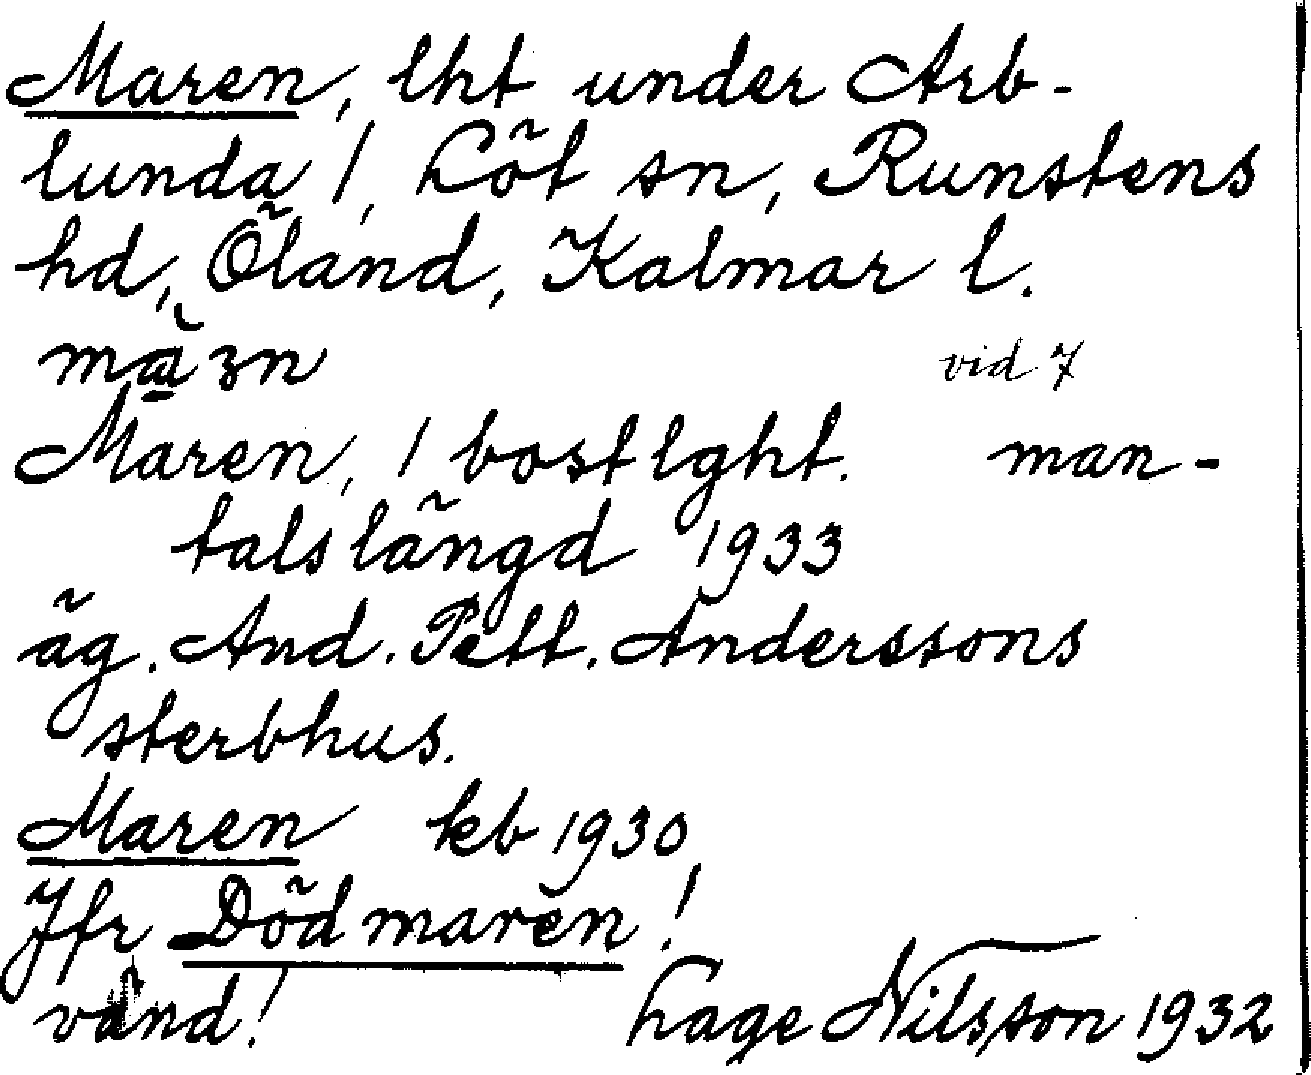 Maren, lht under Arb-
lunda 1, Löt sn, Runstens
hd, Öland, Kalmar l.
vid 7
Maren, 1 bostlght. man-
talslängd 1933
äg. And. Pett. Anderssons
sterbhus.
Maren kb 1930
Jfr Dödmaren!
vänd! Lage Nilsson 1932